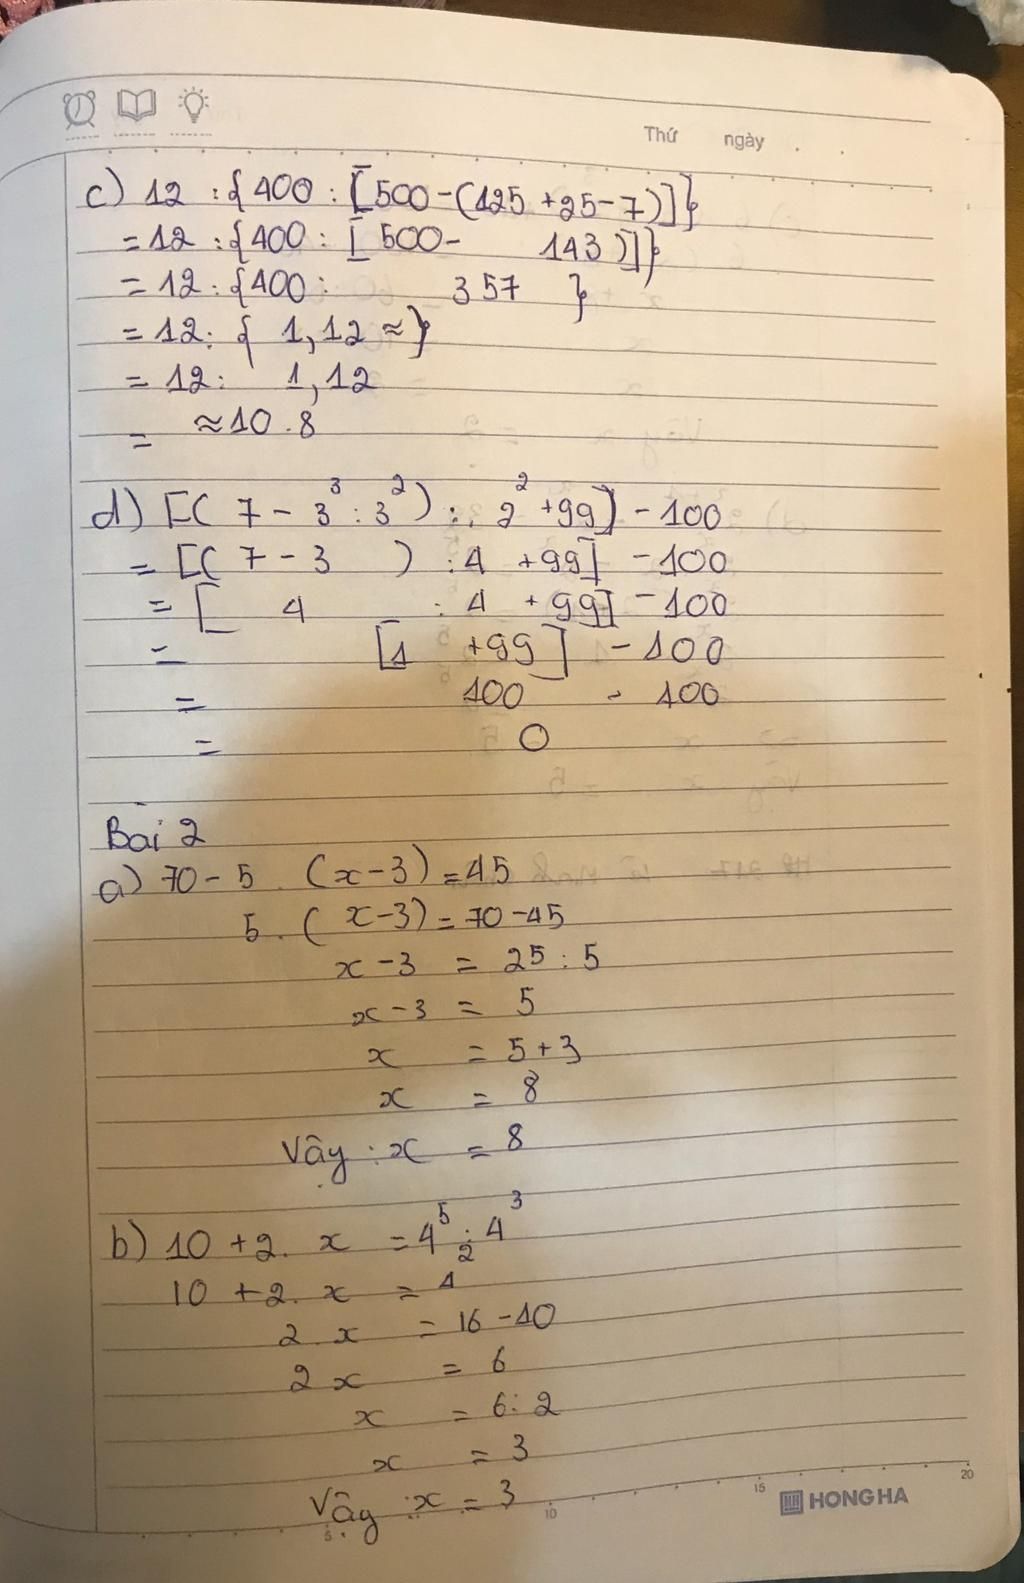 Thứ ngày . .
c) 12 : { 400 : [ 500 - ( 125 + 25 - 7 ) ] }
= 12 : { 400 : [ 500 - 143 ) ] }
= 12 : { 400 : 357 }
= 12 : { 1,12 ≈ }
= 12 : 1,12
= ≈ 10.8
d) [ ( 7 - 3³ : 3² ) : 2² + 99 ] - 100
= [ ( 7 - 3 ) : 4 + 99 ] - 100
= [ 4 : 4 + 99 ] - 100
= [ 1 + 99 ] - 100
= 100 - 100
= 0
Bài 2
a) 70 - 5 . ( x - 3 ) = 45
5 . ( x - 3 ) = 70 - 45
x - 3 = 25 : 5
x - 3 = 5
x = 5 + 3
x = 8
Vậy : x = 8
b) 10 + 2 . x = 4⁵ : 4³
10 + 2 . x = 4²
2 . x = 16 - 10
2 x = 6
x = 6 : 2
x = 3
Vậy : x = 3
5 10 15 20
HONG HA